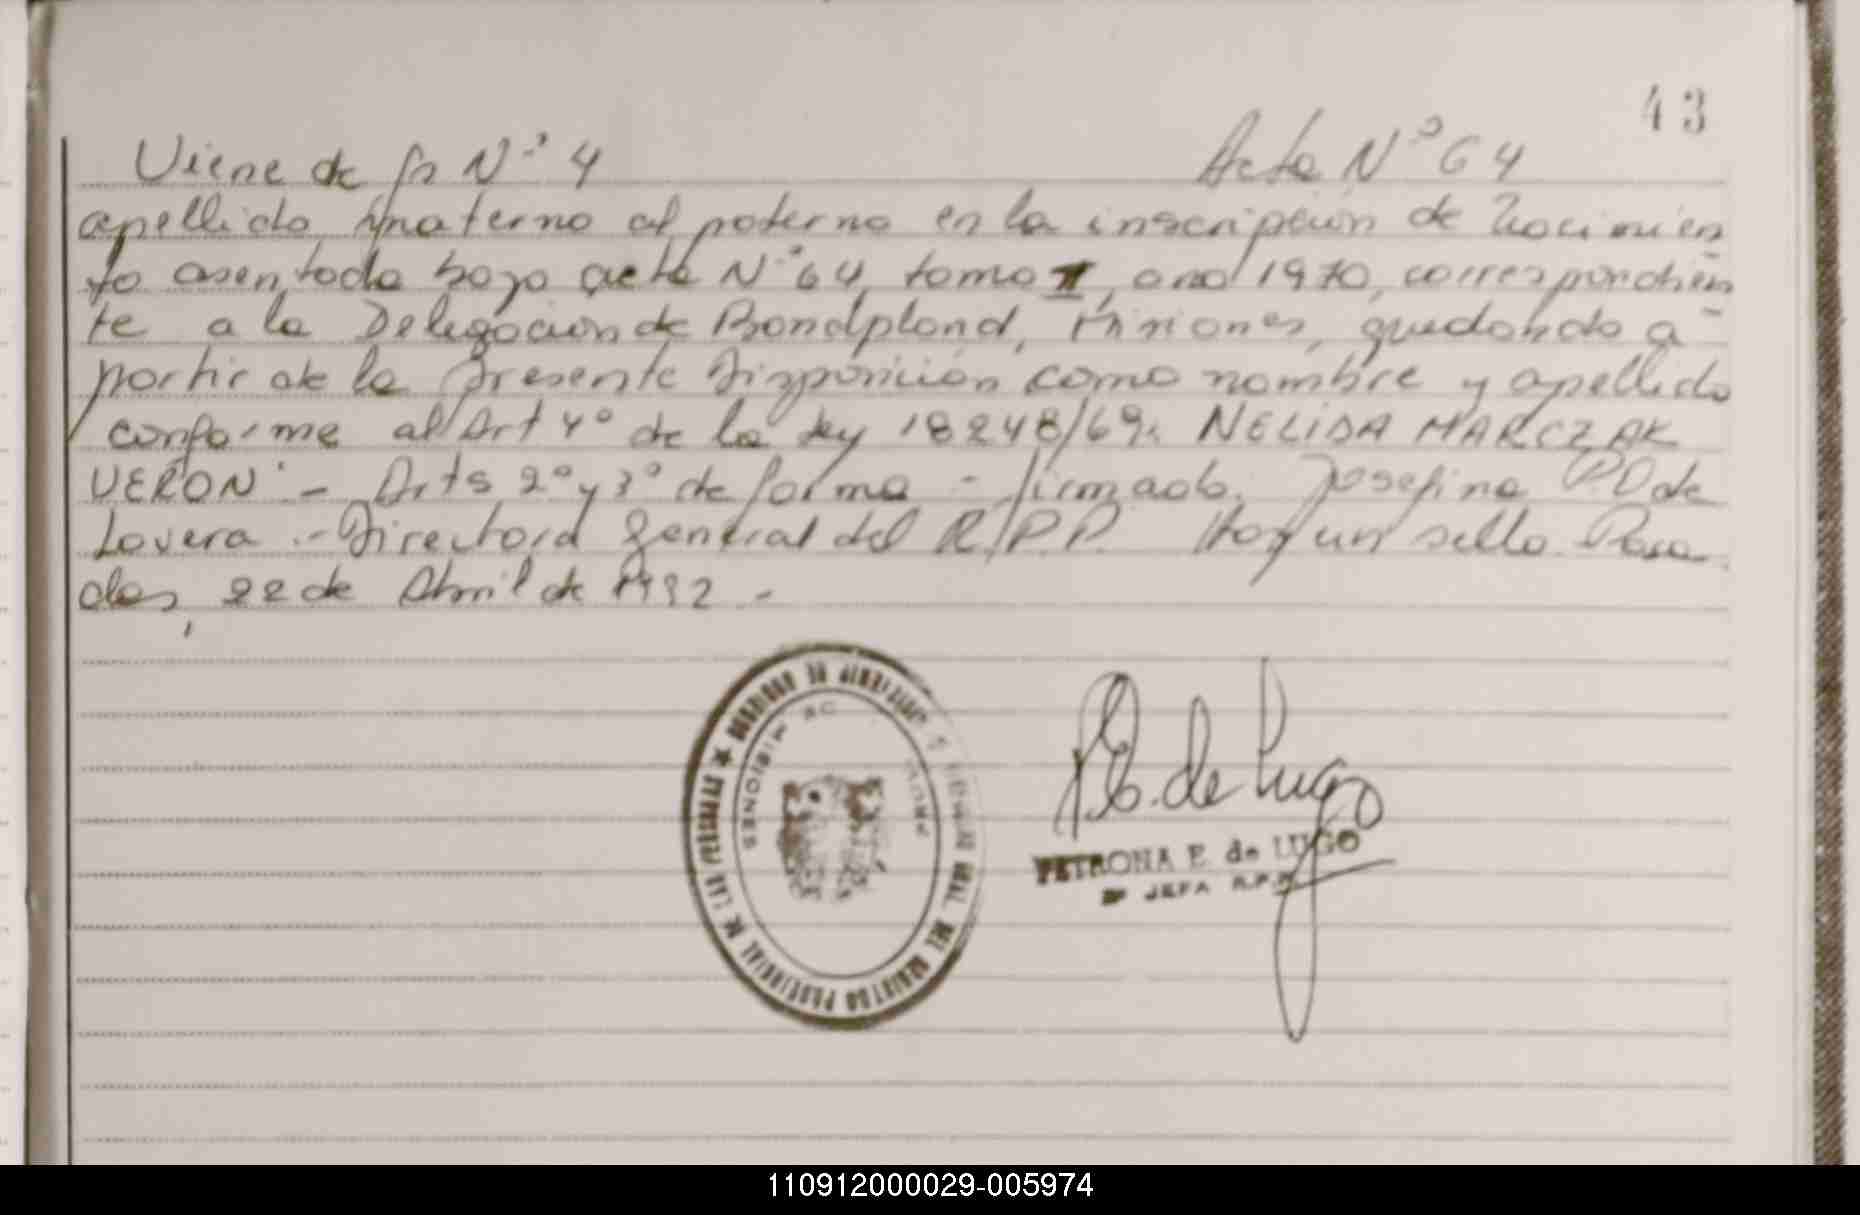 43
Viene de fs N° 4
Acta N° 64
apellido materno al paterno en la inscripción de Nacimien
to asentada bajo acta N° 64, tomo I, año 1970, correspondien
te a la Delegación de Bondpland, Misiones, quedando a
partir de la presente Disposición como nombre y apellido
conforme al Art 4° de la Ley 18248/69: NELIDA MARCZAK
VERON - Arts 2° y 3° de forma - firmado. Josefina P.D de
Lovera - Directora General del R.P.P. Hay un sello. Posa
das, 22 de Abril de 1982 -
MISIONES
PROV.
DE
P.E. de Lugo
PETRONA E. de LUGO
JEFA R.P.P.
110912000029-005974